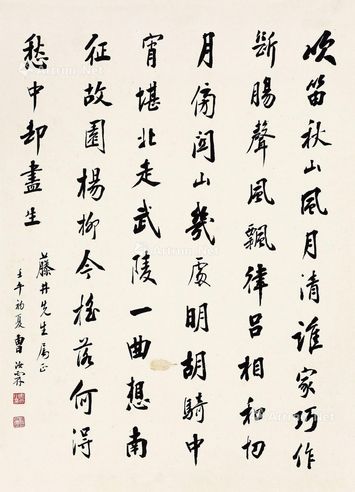 吹笛秋山風月清誰家巧作
斷腸聲風飄律呂相和切
月傍関山幾處明胡騎中
宵堪北走武陵一曲想南
征故園楊柳今搖落何得
愁中却盡生
藤井先生属正
壬午初夏曹汝霖